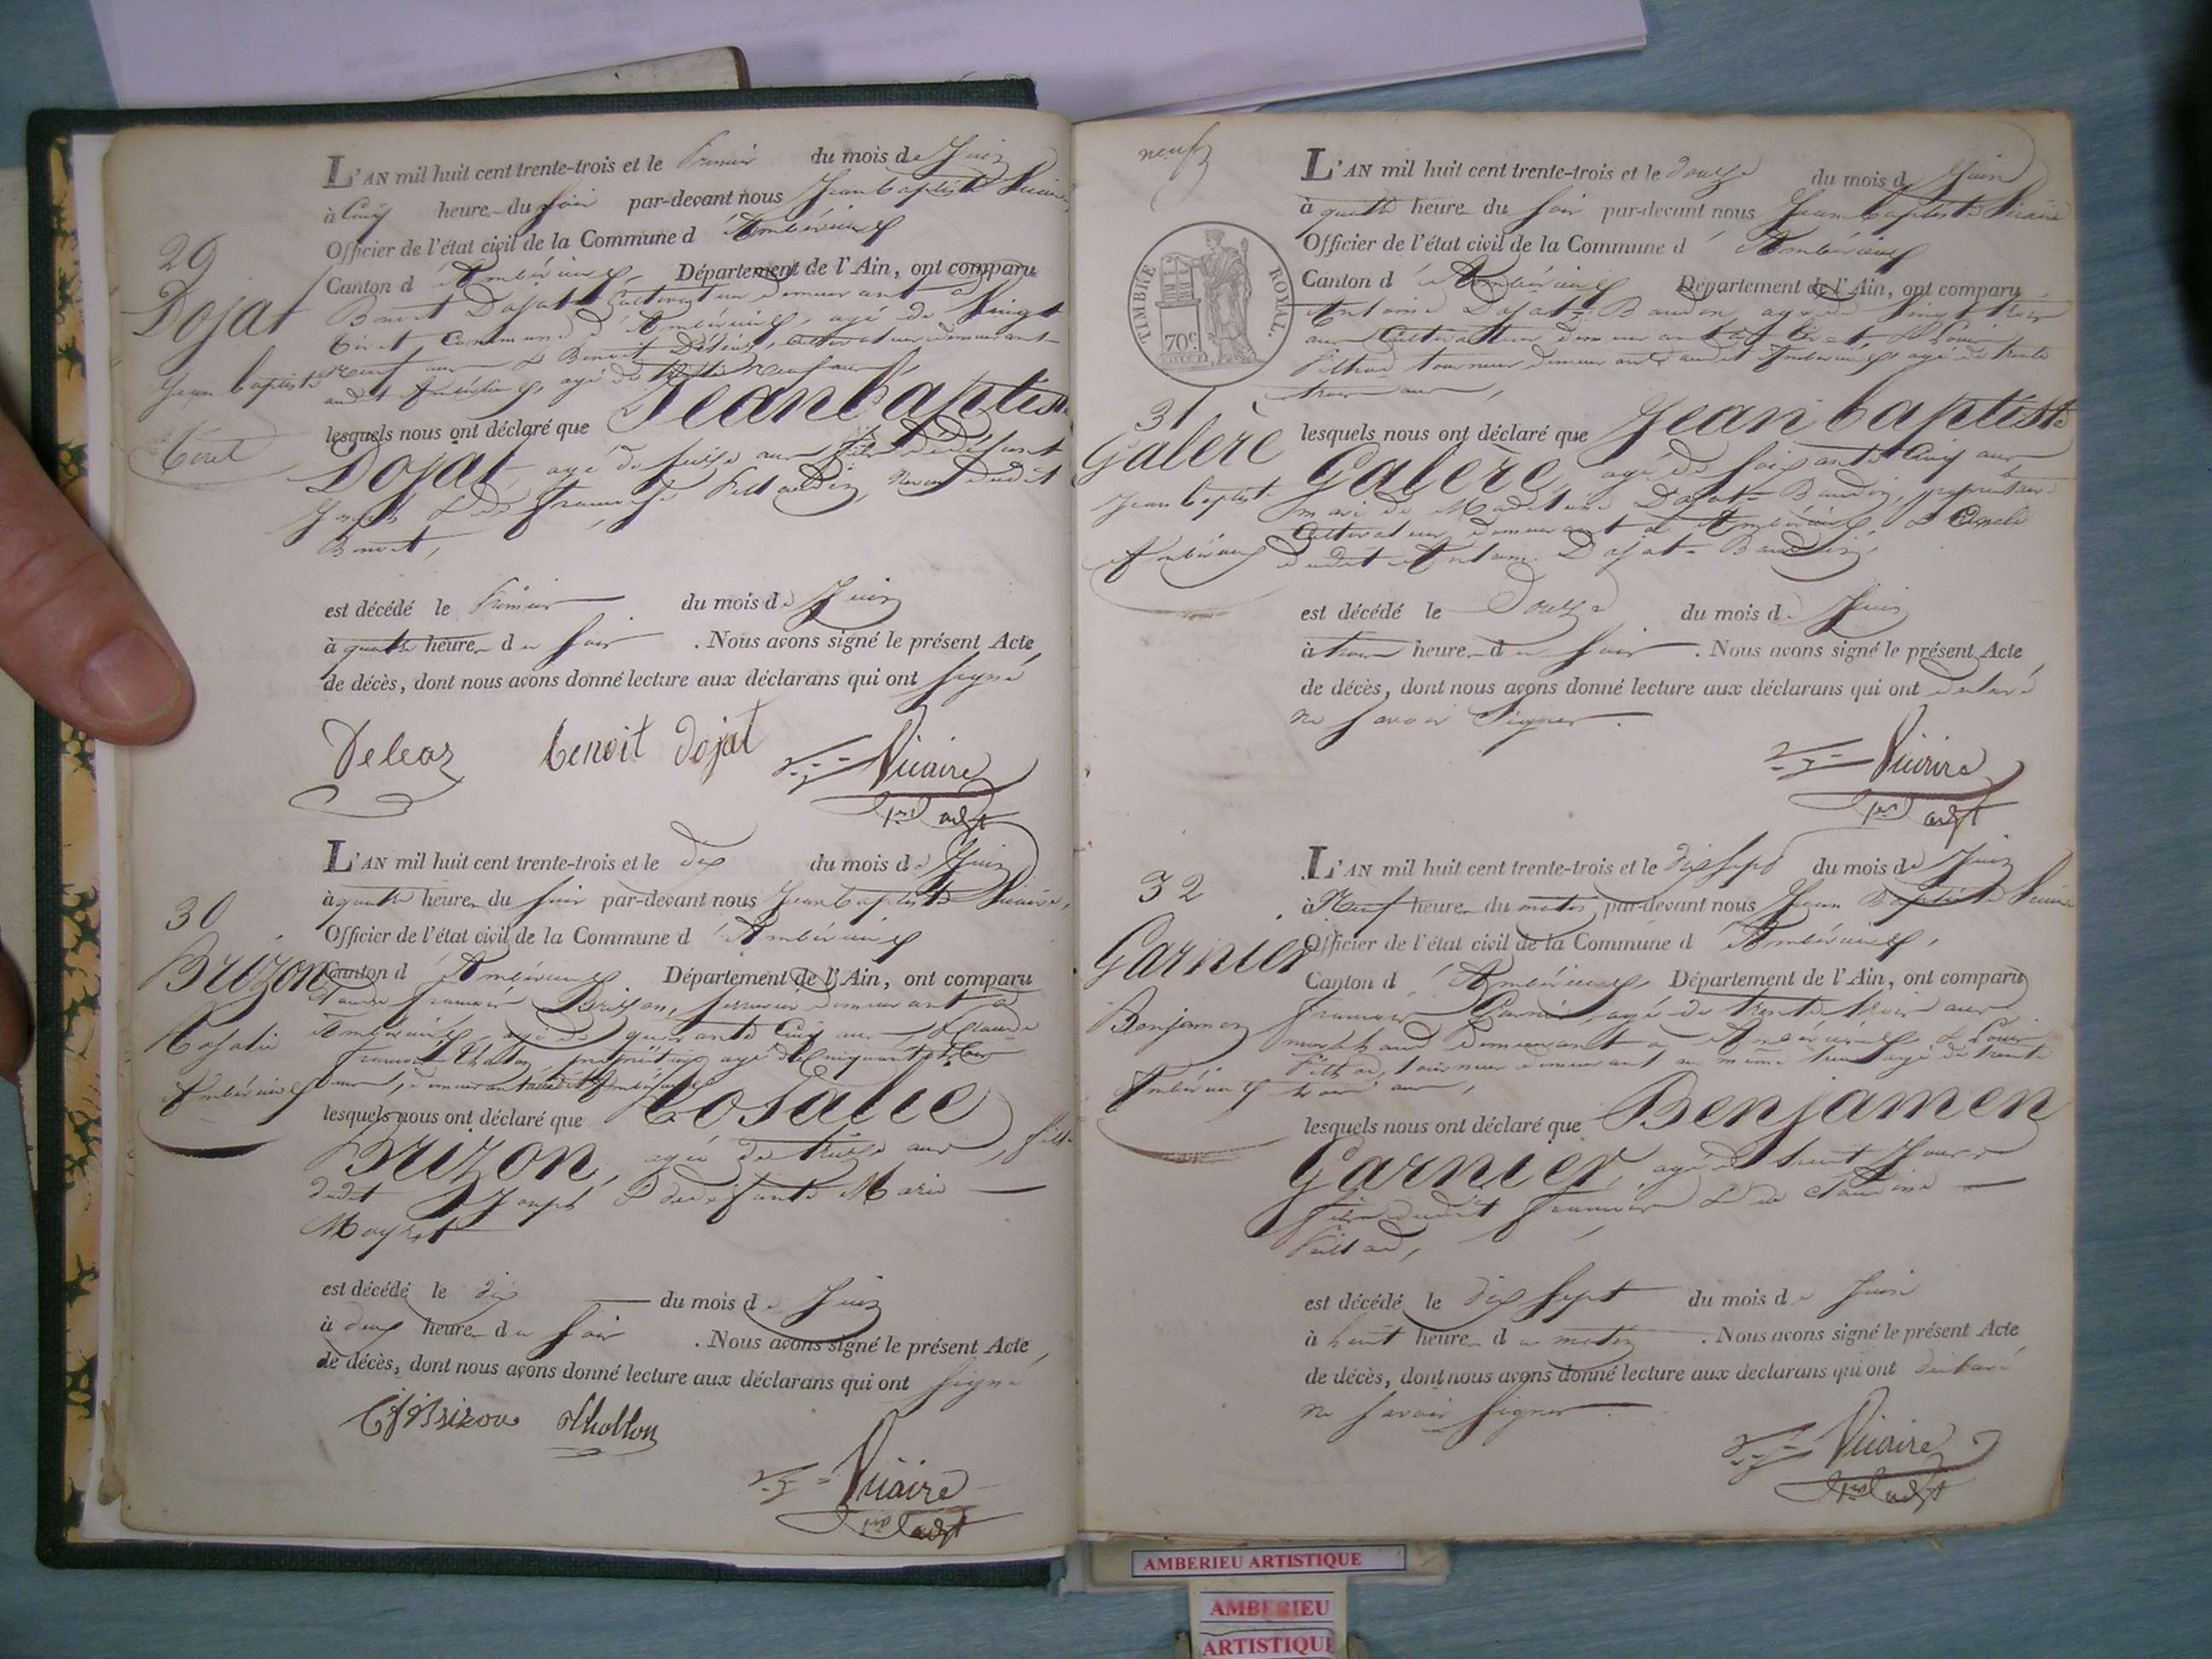 L'AN mil huit cent trente-trois et le Premier du mois de Juin
à Cinq heure du soir par-devant nous Jean baptiste Vicaire,
Officier de l'état civil de la Commune d'Ambérieux
Canton d'Ambérieux Département de l'Ain, ont comparu
29
Dojat
Jean baptiste
Tiret
Benoit Dojat Cultivateur demeurant à
Tiret Commune d'Ambérieux, agé de Vingt
Neuf ans & Benoit cultivateur demeurant
audit Ambérieux, agé de trente Neuf ans,
lesquels nous ont déclaré que Jean baptiste
Dojat agé de seize ans fils de défunt
Joseph & de françoise Neveu dudit
Benoit,
est décédé le Premier du mois de Juin
à quatre heure du soir . Nous avons signé le présent Acte
de décès, dont nous avons donné lecture aux déclarans qui ont signé
Deleaz benoit dojat Vicaire
1er adjt
L'AN mil huit cent trente-trois et le dix du mois de Juin
à quatre heure du soir par-devant nous Jean baptiste Vicaire,
Officier de l'état civil de la Commune d'Ambérieux
30
Brizon
Rosalie
Ambérieux
Canton d'Ambérieux Département de l'Ain, ont comparu
Claude françois Brizon, serrurier demeurant à
Ambérieux, agé de quarante Cinq ans & Claude
françois propriétaire agé de Cinquante
ans, demeurant audit Ambérieux
lesquels nous ont déclaré que Rosalie
Brizon, agée de treize ans, fille
dudit Joseph & de défunte Marie
est décédé le dix du mois de Juin
à deux heure du soir . Nous avons signé le présent Acte
de décès, dont nous avons donné lecture aux déclarans qui ont signé
C f Brizon Thollon
Vicaire
1er adjt
neuf
TIMBRE ROYAL.
70c
L'AN mil huit cent trente-trois et le douze du mois de Juin
à quatre heure du soir par-devant nous Jean baptiste Vicaire
Officier de l'état civil de la Commune d'Ambérieux
Canton d'Ambérieux Département de l'Ain, ont comparu
Antoine Dojat-Baudin, agé de Vingt trois
ans Cultivateur demeurant à Tiret & Louis
tourneur demeurant audit Ambérieux, agé de trente
trois ans,
31
Galère
Jean baptiste
Ambérieux
lesquels nous ont déclaré que Jean baptiste
Galère, agé de soixante Cinq ans
mari de Madelaine Dojat-Baudin, propriétaire
Cultivateur demeurant à Ambérieux &
dudit Antoine Dojat-Baudin,
est décédé le Douze du mois de Juin
à trois heure du soir . Nous avons signé le présent Acte
de décès, dont nous avons donné lecture aux déclarans qui ont déclaré
ne savoir signer.
Vicaire
1er adjt
L'AN mil huit cent trente-trois et le dix sept du mois de Juin
à Neuf heure du matin par-devant nous Jean Baptiste Vicaire
Officier de l'état civil de la Commune d'Ambérieux,
32
Garnier
Benjamen
Ambérieux
Canton d'Ambérieux Département de l'Ain, ont comparu
françois Garnier, agé de trente trois ans
marchand demeurant à Ambérieux & Louis
tourneur demeurant au même lieu agé de trente
trois ans,
lesquels nous ont déclaré que Benjamen
Garnier, agé de huit Jours
fils dudit françois & de Claudine
est décédé le dix sept du mois de Juin
à huit heure du matin . Nous avons signé le présent Acte
de décès, dont nous avons donné lecture aux déclarans qui ont déclaré
ne savoir signer.
Vicaire
1er adjt
AMBERIEU ARTISTIQUE
AMBERIEU
ARTISTIQUE